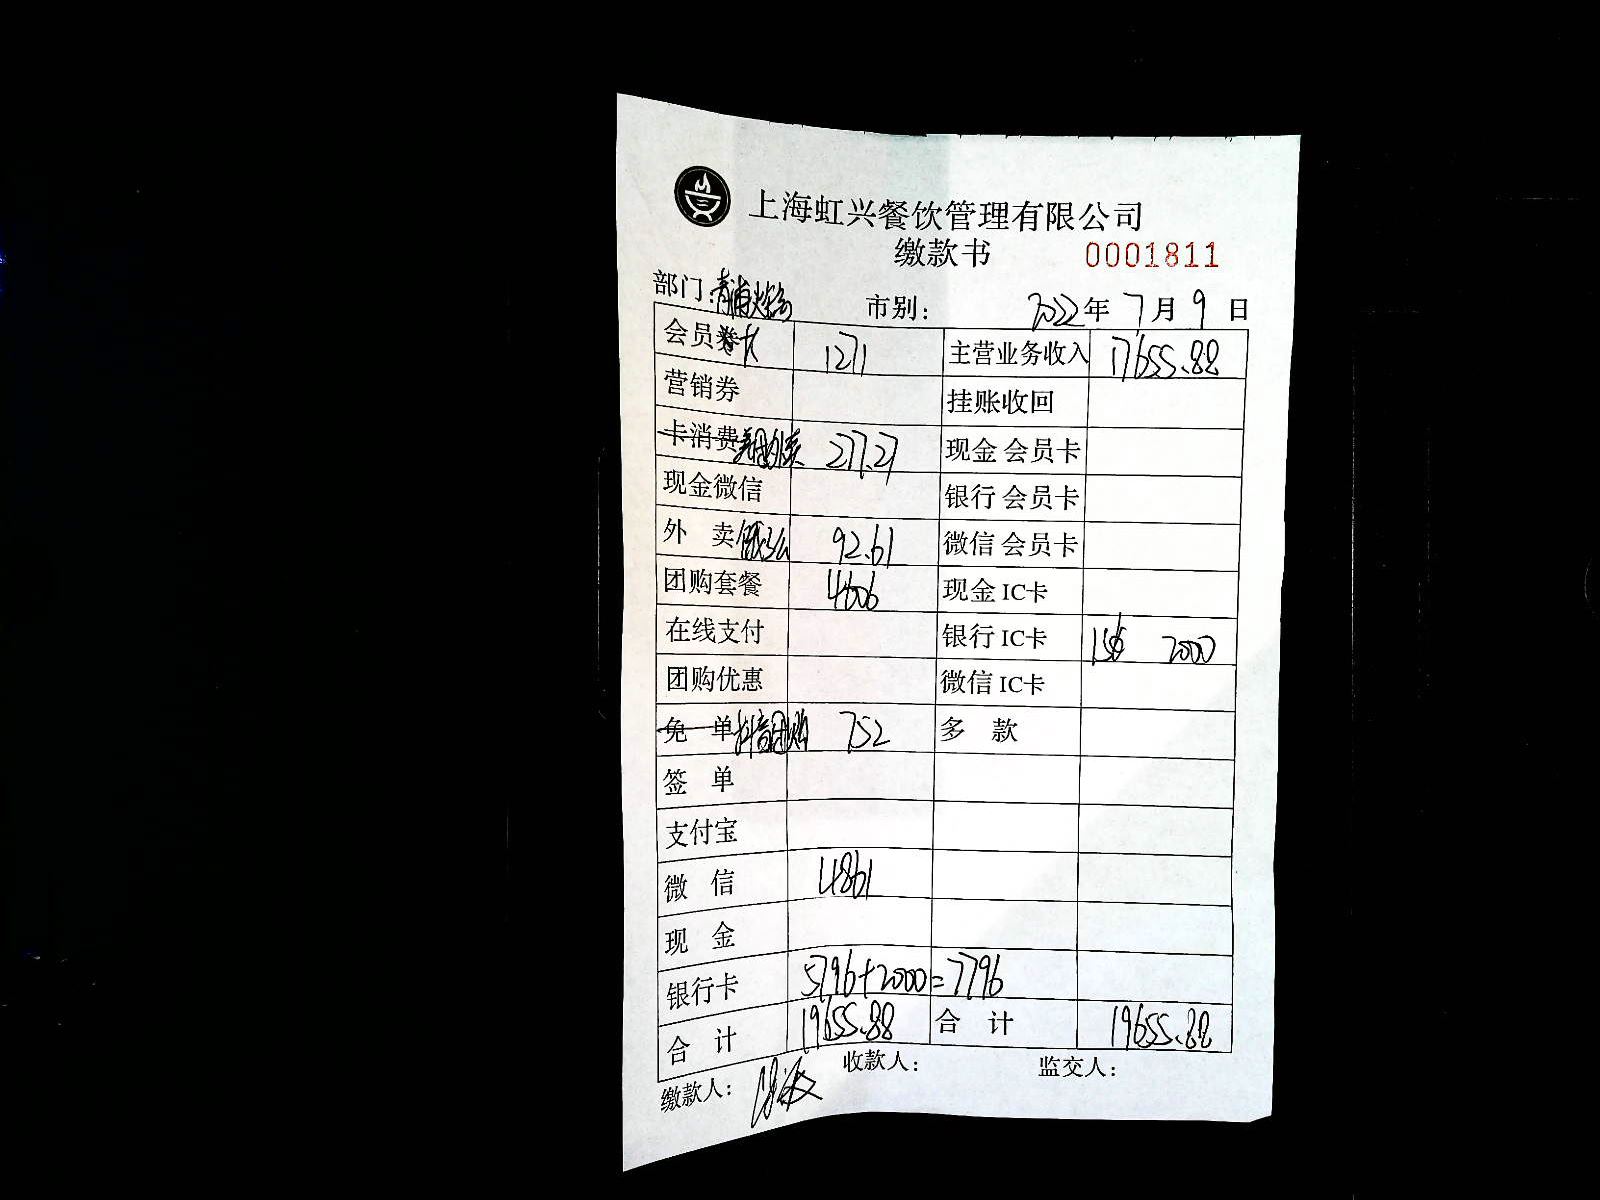 上海虹兴餐饮管理有限公司
缴款书 0001811
部门：青浦 市别： 2022年7月9日
会员卡 1271 主营业务收入 17655.88
营销券 挂账收回
卡消费 美团外卖 277.27 现金 会员卡
现金微信 银行 会员卡
外 卖 饿了么 92.61 微信 会员卡
团购套餐 4606 现金 IC卡
在线支付 银行 IC卡 2000
团购优惠 微信 IC卡
免 单 抖音团购 752 多 款
签 单
支付宝
微 信 4861
现 金
银行卡 5796+2000=7796
合 计 19655.88 合 计 19655.88
缴款人： 收款人： 监交人：